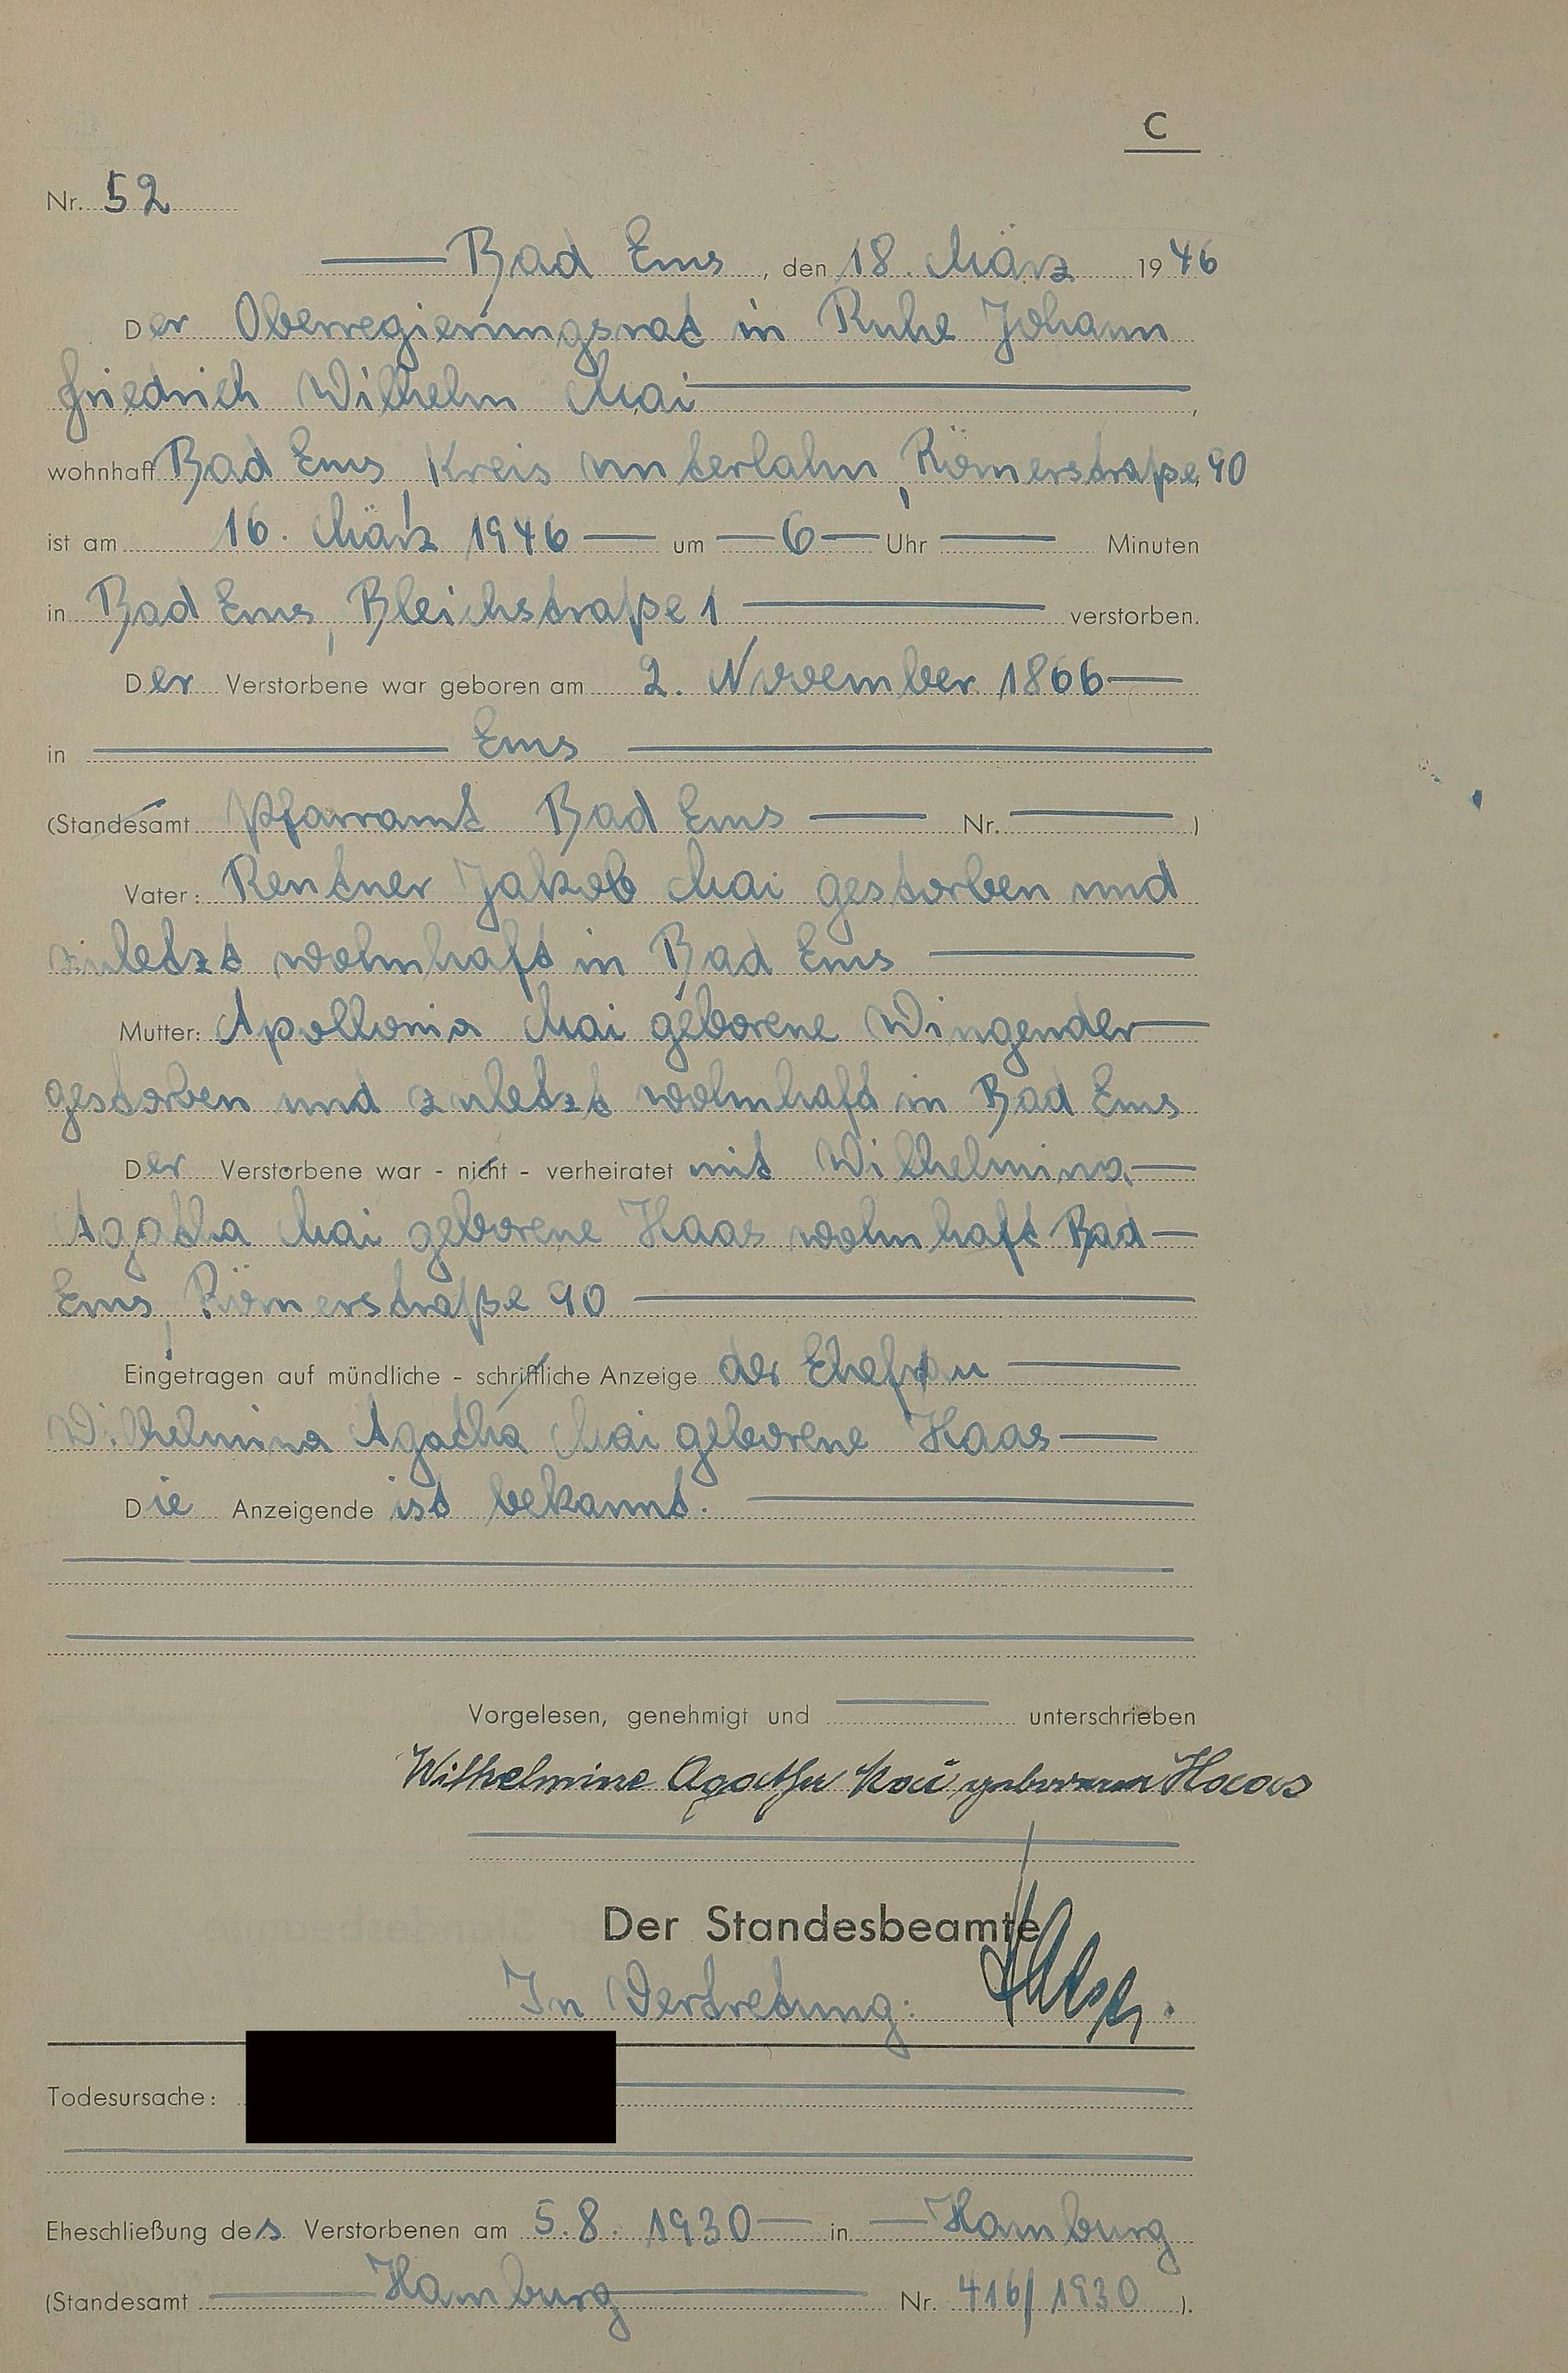 C
Nr. 52
Bad Ems, den 18. März 1946
Der Oberregierungsrat in Ruhe Johann
Friedrich Wilhelm Mai,
wohnhaft Bad Ems, Kreis Unterlahn, Römerstraße 90
ist am 16. März 1946 um 6 Uhr Minuten
in Bad Ems, Bleichstraße 1 verstorben.
Der Verstorbene war geboren am 2. November 1866
in Ems
(Standesamt Pfarramt Bad Ems Nr. )
Vater: Rentner Jakob Mai gestorben und
zuletzt wohnhaft in Bad Ems
Mutter: Apollonia Mai geborene Wingender
gestorben und zuletzt wohnhaft in Bad Ems
Der Verstorbene war - nicht - verheiratet mit Wilhelmina
Agatha Mai geborene Haas wohnhaft Bad
Ems, Römerstraße 90
Eingetragen auf mündliche - schriftliche Anzeige der Ehefrau
Wilhelmina Agatha Mai geborene Haas
Die Anzeigende ist bekannt.
Vorgelesen, genehmigt und unterschrieben
Wilhelmine Agathe Mai geborene Haas
Der Standesbeamte
In Vertretung:
Todesursache:
Eheschließung des Verstorbenen am 5.8.1930 in Hamburg
(Standesamt Hamburg Nr. 416/1930).